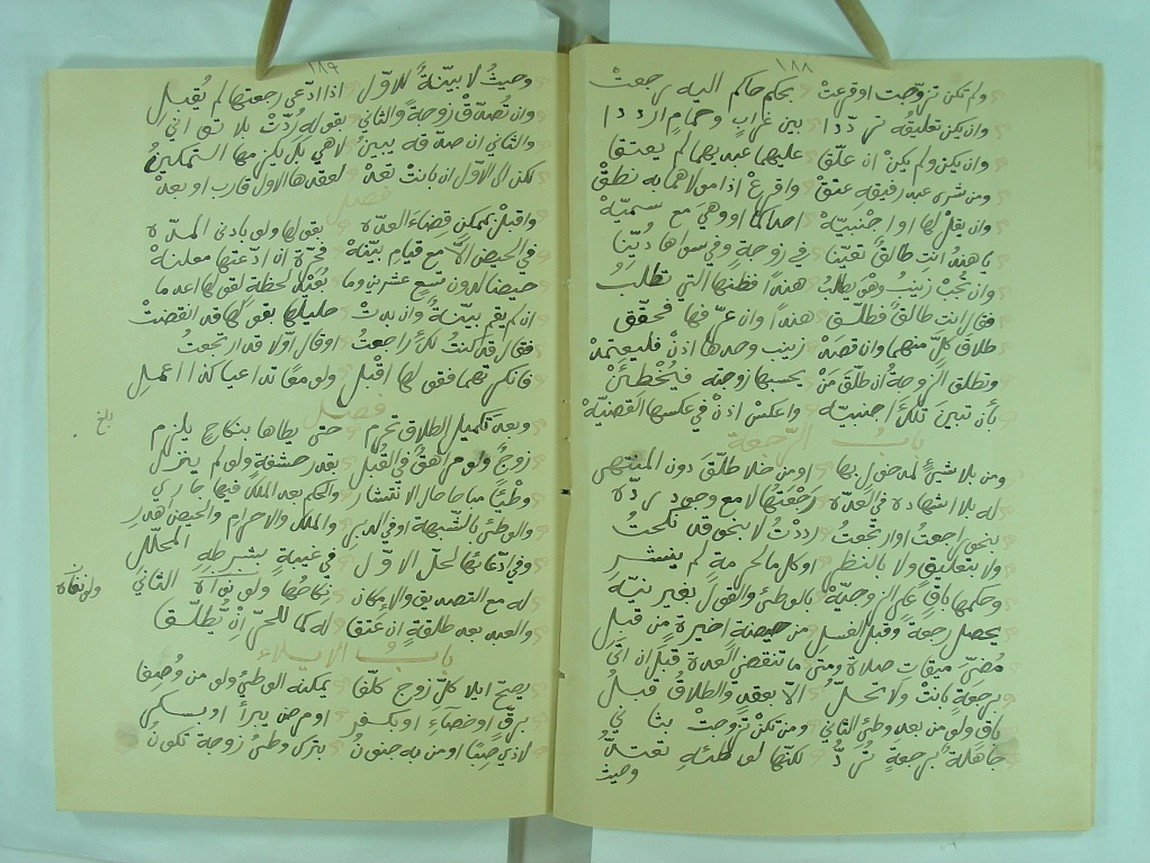 ١٨٨
ولم تكن تزوجت او قرعتْ بحكم حاكم اليه رجعتْ
وان يكن تعليقُه تردّدا بين غرابٍ وحمامٍ ازددا
وان يكن ولم يكنْ ان علّقا عليهما عبديهما لم يعتقا
ومن شرى عبد رفيقِه عتقْ واقرعْ اذا مولاهما به نطقْ
وان يقل لها او اجنبيّهْ احداكما او وهيَ مع سميّهْ
يا هندُ انت طالقٌ تعيّنا في زوجةٍ وفي سواها دُيّنا
وان تُجبْ زينبُ وهْو يطلبُ هنداً فظنها التي تطلبُ
فقال انت طالقٌ فطلّق هنداً وان عرّفها فحقّق
طلاق كلٍّ منهما وان قصدْ زينب وحدها اذنْ فليعتمدْ
وتطلق الزوجةُ ان طلّقَ مَنْ يحسبها زوجته فيُخْطئَنْ
بأن تبينَ تلك اجنبيّه واعكسْ اذنْ في عكسها القضيّهْ
بابُ الرّجعة
ومن بلا شيءٍ لمدخولٍ بها او من خلا طلّقَ دون المنتهى
له بلا اشهادهِ في العدّهْ رَجْعَتُها لا مع وجودِ ردّهْ
بنحوِ راجعتُ او ارتجعتُ رددْتُ لا بنحوِ قد نكحتُ
ولا بتعليقٍ ولا بالنظرِ او كل ما لحرمةٍ لم ينشرِ
وحكمها باقٍ على الزوجيّهْ بالوطئِ والقول بغير نيّهْ
يحصل رجعةٌ وقبلَ الغسلِ من حيضةٍ اخيرةٍ من قبلِ
مُضيّ ميقات صلاةٍ ومتى ما تنقضِ العدة قبل ان اتى
برجعةٍ بانتْ ولا تحلُّ الا بعقدٍ والطلاقُ قبلُ
باقٍ ولو من بعد وطئِ الثاني ومن تكنْ تزوجتْ بثاني
جاهلةً برجعةٍ تُردُّ لكنّها لوطئه تعتدُّ
وحيث
١٨٩
وحيثُ لا بيّنةٌ للاوّلِ اذا ادّعى رجعتها لم يُقبلِ
وان تُصدّقْ زوجةٌ والثاني بقوله رُدّتْ بلا تواني
والثاني ان صدّقه يبينُ لا هي بل يلزمها التمكينُ
لكن الى الاوّل ان بانتْ تعدْ لعقدها الاول قارب او بعدْ
فصل
واقبلْ بممكنٍ قضاءَ العدّه بقولها ولو بادنى المدّه
في الحيض الّا مع قيامِ بيّنهْ فحرّة ان ادّعتها معلنهْ
حيضا لدون تسعِ عشرين وما تُعتدُّ لحظةً لقولها اعدما
ان لم يقم بيّنةٌ وان بدتْ حليلَها بقولها قد انقضتْ
فقال قد كنتُ لكِ راجعتُ او قال اوّلا قد ارتجعتُ
فانكرتهما فقولها اقْبلِ ولو معًا تداعيا كذا اعملِ
فصل
وبعد تكميل الطلاق تحرمُ حتى يطاها بنكاحٍ يلزمُ
بلغ
زوجٌ ولو مراهقٌ في القُبلِ بقدر حشفةٍ ولو لم ينزلِ
وطْئًا مباحا حال الانتشارِ والحكم بعد الملك فيها جاري
والوطئُ بالشّبهة او في الدبرِ والملك والاحرام والحيض هدرِ
وفي ادّعائها لحلّ الاوّلِ في غيبةٍ بشرطه المحلّلِ
له مع التصديق والامكانِ نكاحُها ولو نواه الثاني
ولو نفاه
والعبد بعد طلقةٍ ان عَتقا له كما للحرّ انْ يُطلّقا
بابُ الايلاء
يصحّ ايلا كلّ زوجٍ كلّفا يمكنه الوطئُ ولو من وُصفا
برقٍّ او خصاءٍ او بكفرِ او مرضٍ يبرأ او بسكرِ
لا ذي صِبًا او من به جنونُ بترك وطئِ زوجة تكونُ